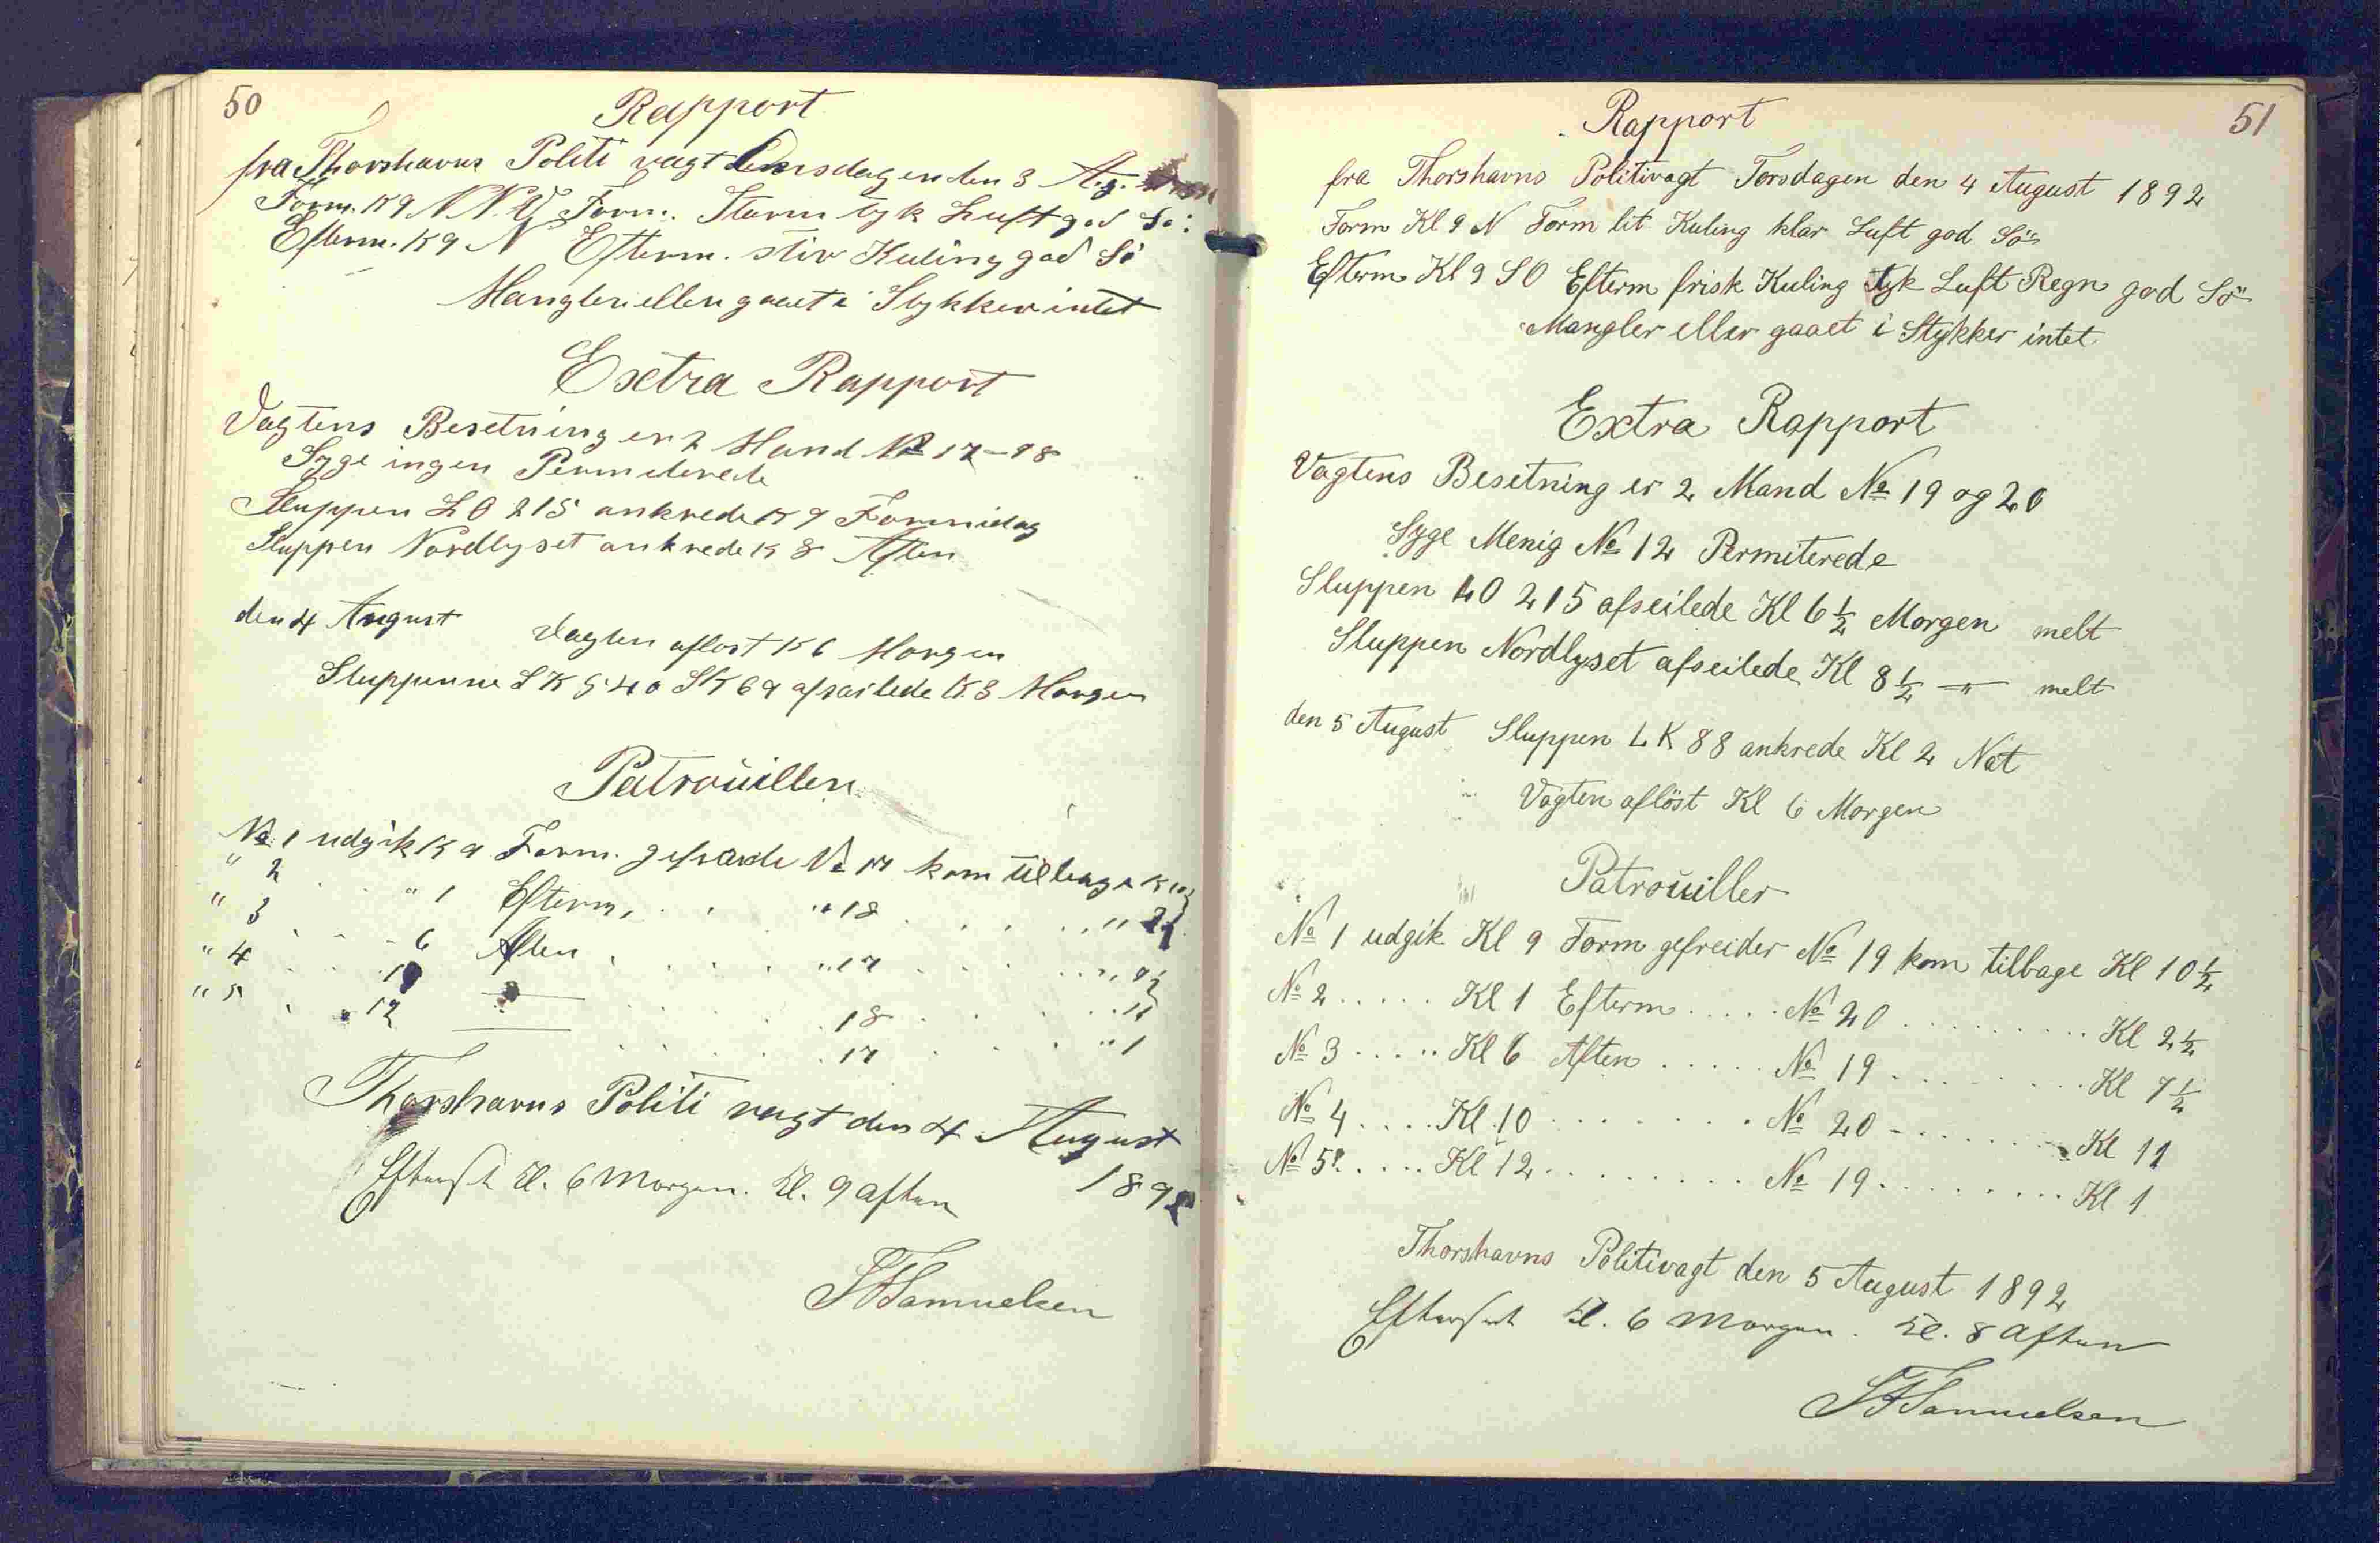 50
Rapport
fra Thorshavns Politi vagt Onsdagen den 3 Aug.
Form. K 9 N.N.V Form. Storm tyk Luft god Sö:
Efterm. K 9 N Efterm. stiv Kuling god Sö
Mangler eller gaaet i Stykker intet
Extra Rapport
Vagtens Besetning er 2 Mand No 17-18
Syge ingen Permiterede
Sluppen LO 215 ankrede K 9 Formidag
Sluppen Nordlyset ankrede K 8 Aften
den 4 August Vagten aflöst K 6 Morgen
Slupperne LK 540 SK 69 afsailede K 3 Morgen
Patrouillen
No 1 udgik K 9 Form. gefraide No 17 kom tilbage K 10½
" 2 . . " 1 Efterm. . . "18 . . . " 2½
" 3 . . . 6 Aften . . . . "17 . . . . " 7½
" 4 . . . 10 — . . . . 18 . . . . 11
" 5 . . 12 — . . . . 17 . . . "1
Thorshavns Politi vagt den 4 August
1892
Efterset Kl. 6 Morgen. Kl. 9 aften
Samuelsen
51
Rapport
fra Thorshavns Politivagt Torsdagen den 4 August 1892
Form Kl 9 N Form lit Kuling klar Luft god Sö
Efterm Kl 9 SO Efterm frisk Kuling tyk Luft Regn god Sö
Mangler eller gaaet i Stykker intet
Extra Rapport
Vagtens Besetning er 2 Mand No 19 og 20
Syge Menig No 12 Permiterede
Sluppen LO 215 afseilede Kl 6½ Morgen melt
Sluppen Nordlyset afseilede Kl 8½ —"— melt
den 5 August Sluppen LK 88 ankrede Kl 2 Nat
Vagten aflöst Kl 6 Morgen
Patrouiller
No 1 udgik Kl 9 Form gefreider No 19 kom tilbage Kl 10½
No 2 ..... Kl 1 Efterm ..... No 20 ......... Kl 2½
No 3 ..... Kl 6 Aften ..... No 19 ......... Kl 7½
No 4 .... Kl 10 ....... No 20 - ....... Kl 11
No 5 ..... Kl 12 ........ No 19 ......... Kl 1
Thorshavns Politivagt den 5 August 1892
Efterset Kl. 6 Morgen. Kl. 8 aften
Samuelsen